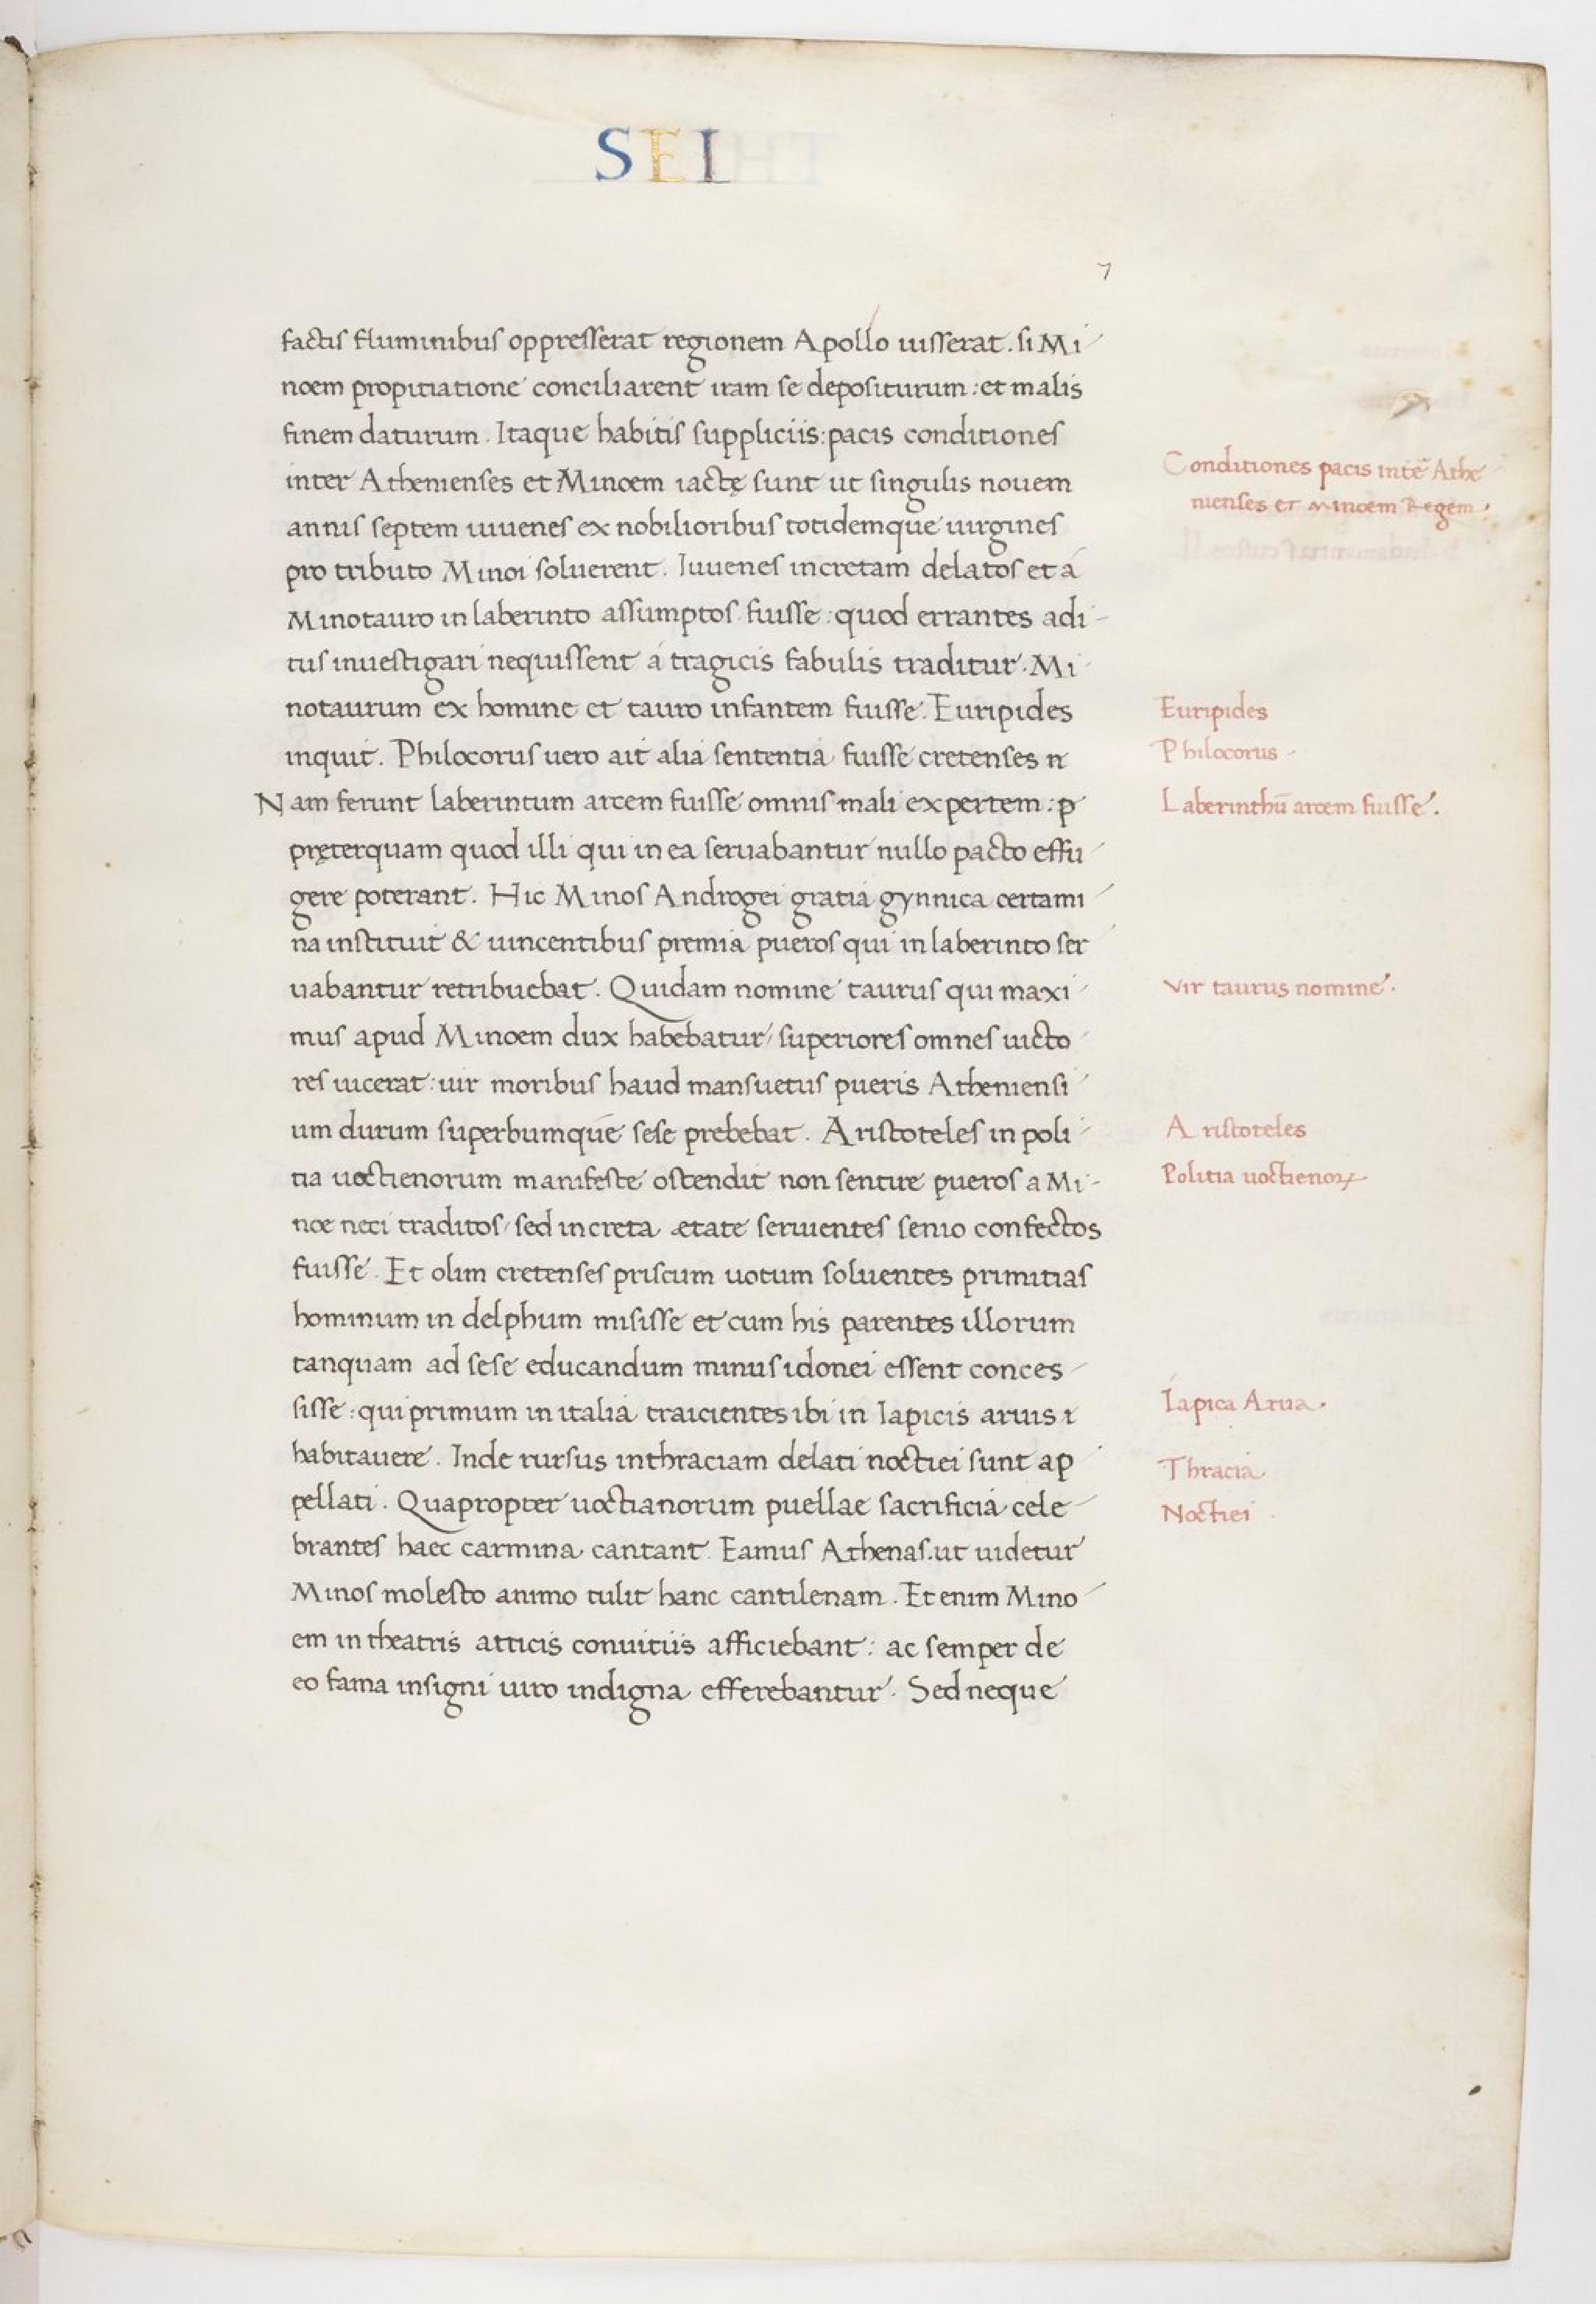 SEI
7
factis fluminibus oppresserat regionem Apollo iusserat. si Mi
noem propitiatione conciliarent iram se depositurum: et malis
finem daturum. Itaque habitis suppliciis: pacis conditiones
inter Athenienses et Minoem iactę sunt ut singulis nouem
annis septem iuuenes ex nobilioribus totidemque uirgines
pro tributo Minoi soluerent. Iuuenes in cretam delatos et á
Minotauro in laberinto assumptos fuisse: quod errantes adi-
tus inuestigari nequissent á tragicis fabulis traditur. Mi
notaurum ex homine et tauro infantem fuisse. Euripides
inquit. Philocorus uero ait alia sententia fuisse cretenses n
Nam ferunt laberintum arcem fuisse omnis mali expertem: p
pręterquam quod illi qui in ea seruabantur nullo pacto effu
gere poterant. Hic Minos Androgei gratia gynnica certami
na instituit & uincentibus premia pueros qui in laberinto ser
uabantur retribuebat. Quidam nomine taurus qui maxi
mus apud Minoem dux habebatur/ superiores omnes uicto
res uicerat: uir moribus haud mansuetus pueris Atheniensi
um durum superbumque sese prebebat. Aristoteles in poli
tia uoctienorum manifeste ostendit non sentire pueros a Mi-
noe neci traditos/ sed in creta ætate seruientes senio confectos
fuisse. Et olim cretenses priscum uotum soluentes primitias
hominum in delphum misisse et cum his parentes illorum
tanquam ad sese educandum minus idonei essent conces
sisse: qui primum in italia traicientes ibi in Iapicis aruis i
habitauere. Inde rursus in thraciam delati noctiei sunt ap
pellati. Quapropter uoctianorum puellae sacrificia cele
brantes haec carmina cantant. Eamus Athenas. ut uidetur
Minos molesto animo tulit hanc cantilenam. Et enim Mino
em in theatris atticis conuitiis afficiebant: ac semper de
eo fama insigni uiro indigna efferebantur. Sed neque
Conditiones pacis inte Athe
nienses et Minoem Regem.
Euripides
Philocorus
Laberinthū arcem fuisse.
Vir taurus nomine.
Aristoteles
Politia uoctienoꝝ
Iapica Arua.
Thracia
Noctiei